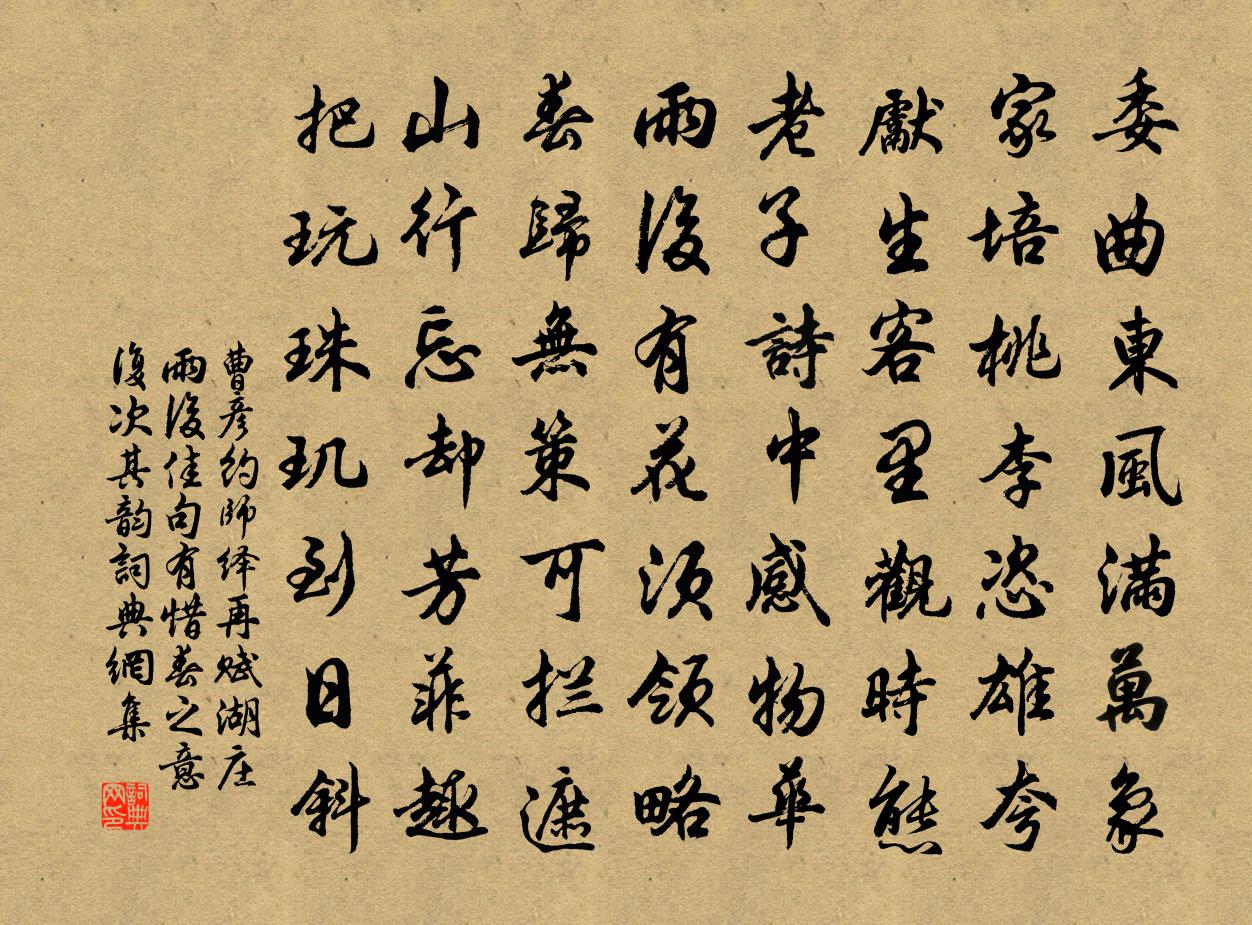 委曲東風滿萬象
家培桃李恣雄夸
獻生客里觀時態
老子詩中感物華
雨後有花須領略
春歸無策可拦遮
山行忘却芳菲趣
把玩珠玑到日斜
曹彦約師绎再赋湖庄
雨後佳句有惜春之意
復次其韵詞典網集
詞典
网印